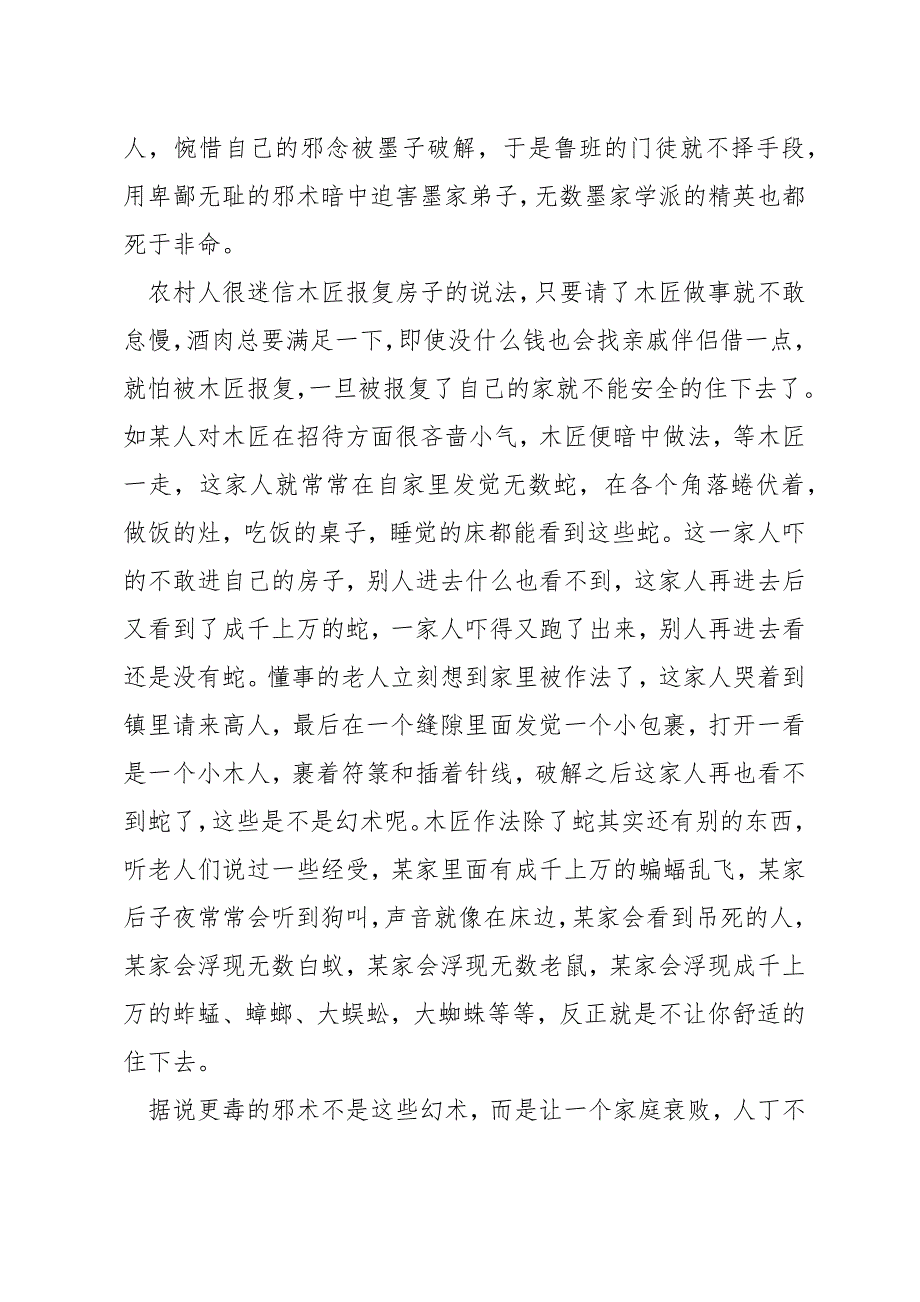 人，惋惜自己的邪念被墨子破解，于是鲁班的门徒就不择手段，
用卑鄙无耻的邪术暗中迫害墨家弟子，无数墨家学派的精英也都
死于非命。
农村人很迷信木匠报复房子的说法，只要请了木匠做事就不敢
怠慢，酒肉总要满足一下，即使没什么钱也会找亲戚伴侣借一点，
就怕被木匠报复，一旦被报复了自己的家就不能安全的住下去了。
如某人对木匠在招待方面很吝啬小气，木匠便暗中做法，等木匠
一走，这家人就常常在自家里发觉无数蛇，在各个角落蜷伏着，
做饭的灶，吃饭的桌子，睡觉的床都能看到这些蛇。这一家人吓
的不敢进自己的房子，别人进去什么也看不到，这家人再进去后
又看到了成千上万的蛇，一家人吓得又跑了出来，别人再进去看
还是没有蛇。懂事的老人立刻想到家里被作法了，这家人哭着到
镇里请来高人，最后在一个缝隙里面发觉一个小包裹，打开一看
是一个小木人，裹着符箓和插着针线，破解之后这家人再也看不
到蛇了，这些是不是幻术呢。木匠作法除了蛇其实还有别的东西，
听老人们说过一些经受，某家里面有成千上万的蝙蝠乱飞，某家
后子夜常常会听到狗叫，声音就像在床边，某家会看到吊死的人，
某家会浮现无数白蚁，某家会浮现无数老鼠，某家会浮现成千上
万的蚱蜢、蟑螂、大蜈蚣，大蜘蛛等等，反正就是不让你舒适的
住下去。
据说更毒的邪术不是这些幻术，而是让一个家庭衰败，人丁不